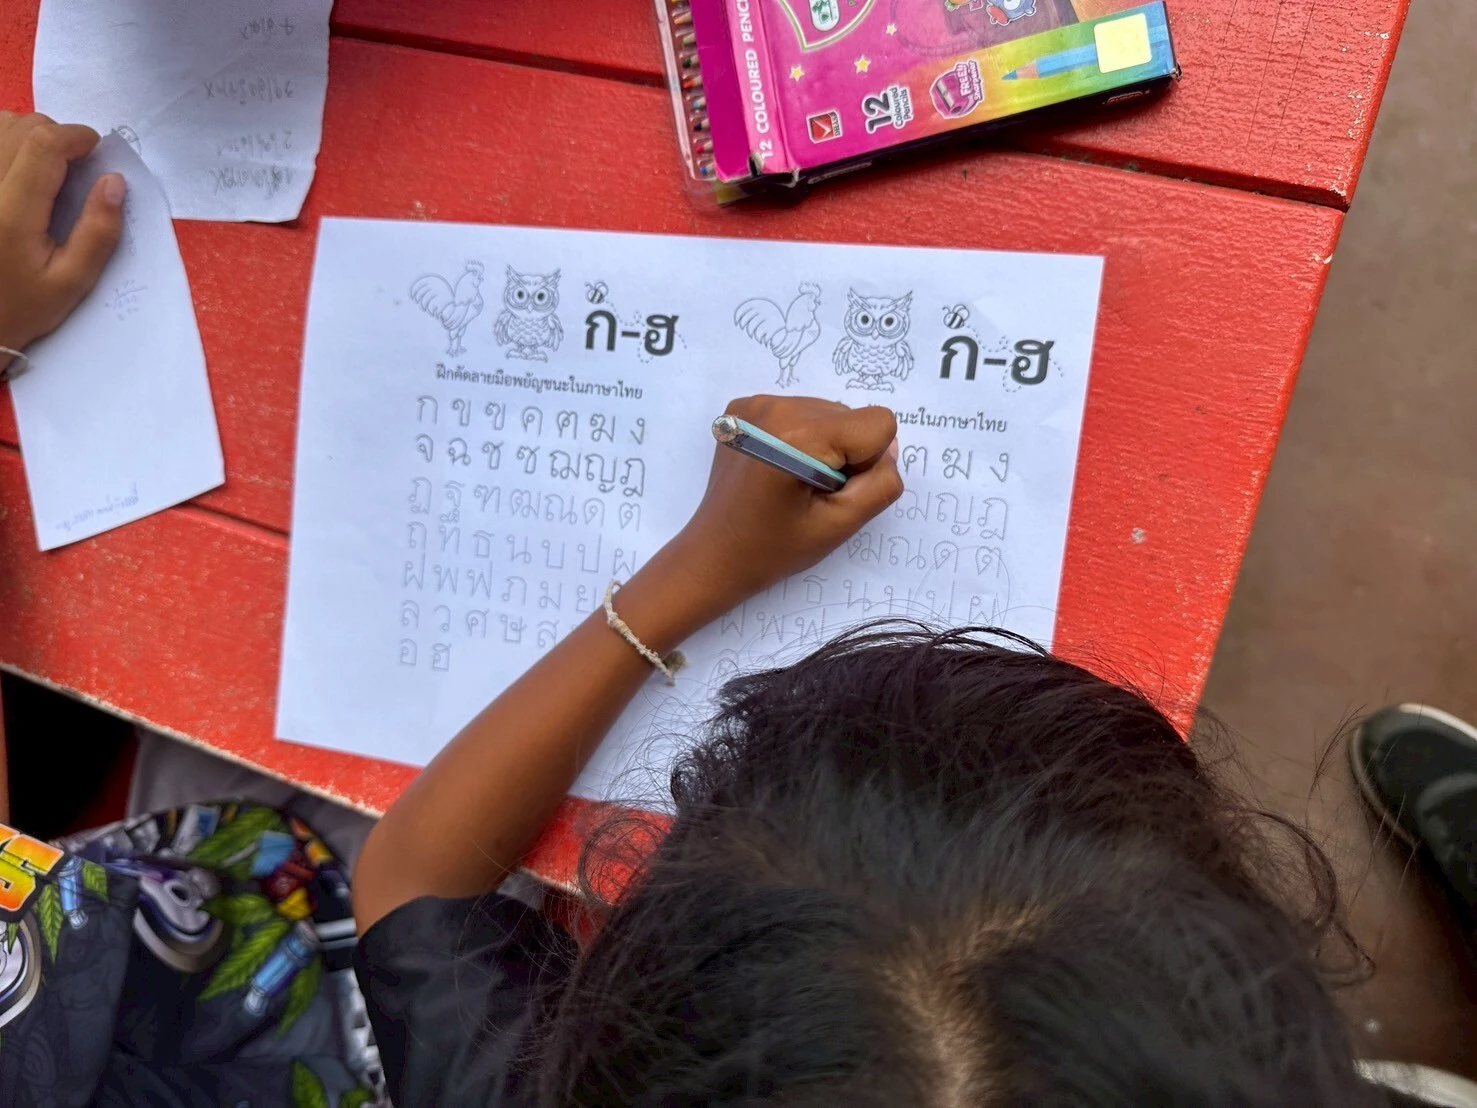 12 COLOURED PENCI
12
Coloured
Pencils
FREE!
ก-ฮ
ฝึกคัดลายมือพยัญชนะในภาษาไทย
ก ข ฃ ค ฅ ฆ ง
จ ฉ ช ซ ฌ ญ ฎ
ฏ ฐ ฑ ฒ ณ ด ต
ถ ท ธ น บ ป ผ
ฝ พ ฟ ภ ม ย
ล ว ศ ษ ส
อ ฮ
ก-ฮ
นะในภาษาไทย
ฅ ฆ ง
ฌ ญ ฎ
ฒ ณ ด ต
ธ น บ ป ผ
ฝ พ ฟ